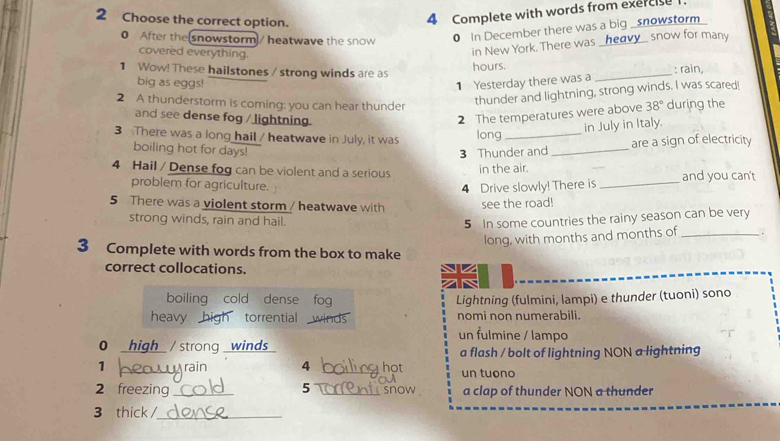 2 Choose the correct option.
0 After the snowstorm / heatwave the snow
covered everything.
1 Wow! These hailstones / strong winds are as
big as eggs!
2 A thunderstorm is coming: you can hear thunder
and see dense fog / lightning.
3 There was a long hail / heatwave in July, it was
boiling hot for days!
4 Hail / Dense fog can be violent and a serious
problem for agriculture.
5 There was a violent storm / heatwave with
strong winds, rain and hail.
3 Complete with words from the box to make
correct collocations.
boiling cold dense fog
heavy high torrential winds
0 high / strong winds
1 heavy rain
2 freezing cold
3 thick / dense
4 boiling hot
5 Torrential snow
4 Complete with words from exercise 1.
0 In December there was a big snowstorm
in New York. There was heavy snow for many
hours.
1 Yesterday there was a ____ : rain,
thunder and lightning, strong winds. I was scared!
2 The temperatures were above 38° during the
long ____ in July in Italy.
3 Thunder and ____ are a sign of electricity
in the air.
4 Drive slowly! There is ____ and you can't
see the road!
5 In some countries the rainy season can be very
long, with months and months of ____.
Lightning (fulmini, lampi) e thunder (tuoni) sono
nomi non numerabili.
un fulmine / lampo
a flash / bolt of lightning NON a lightning
un tuono
a clap of thunder NON a thunder